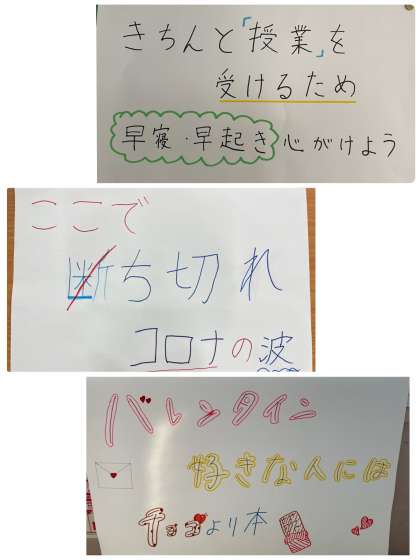 きちんと「授業」を
受けるため
早寝・早起き心がけよう
ここで
断ち切れ
コロナの波
バレンタイン
好きな人には
チョコより本